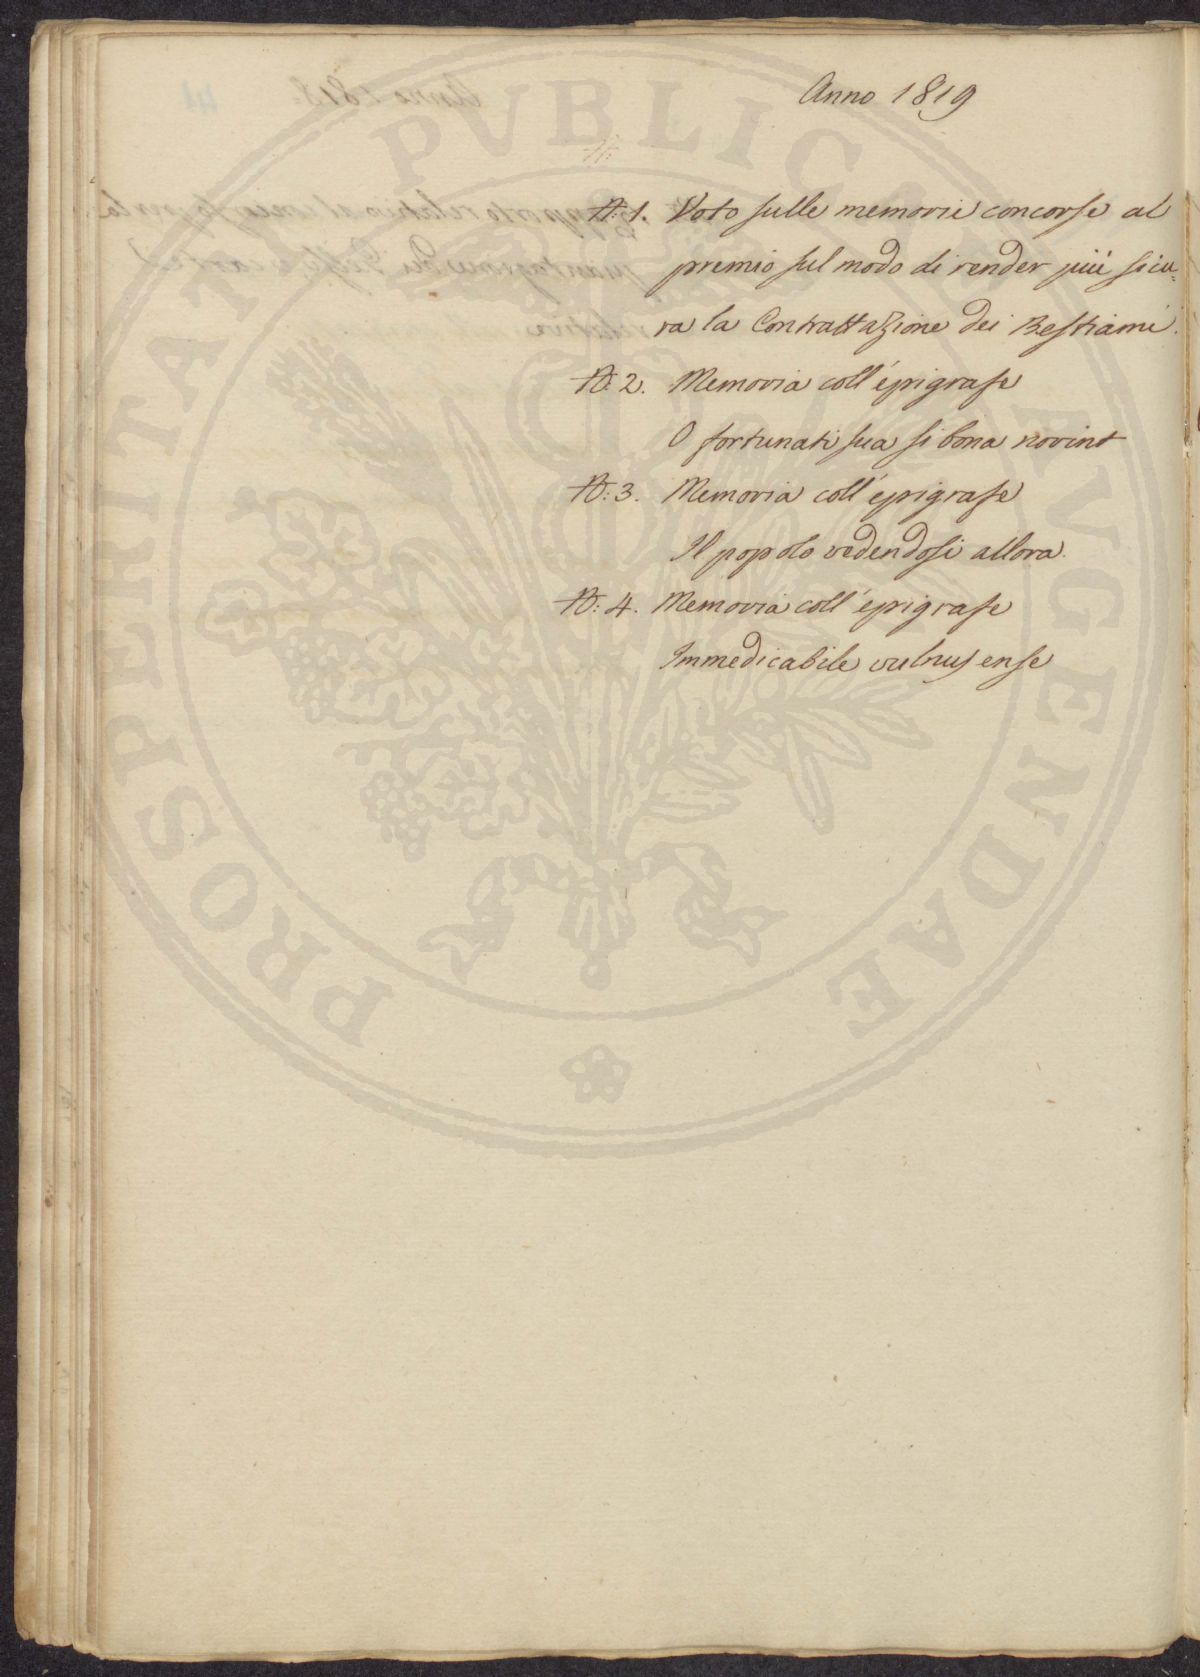 Anno 1819
N: 1. Voto sulle memorie concorse al
premio sul modo di render più sicu=
ra la Contrattazione dei Bestiami.
N: 2. Memoria coll'epigrafe
O fortunati sua si bona norint
N: 3. Memoria coll'epigrafe
Il popolo vedendosi allora.
N: 4. Memoria coll'epigrafe
Immedicabile vulnus ense
PROSPERITATI PVBLICAE AVGENDAE